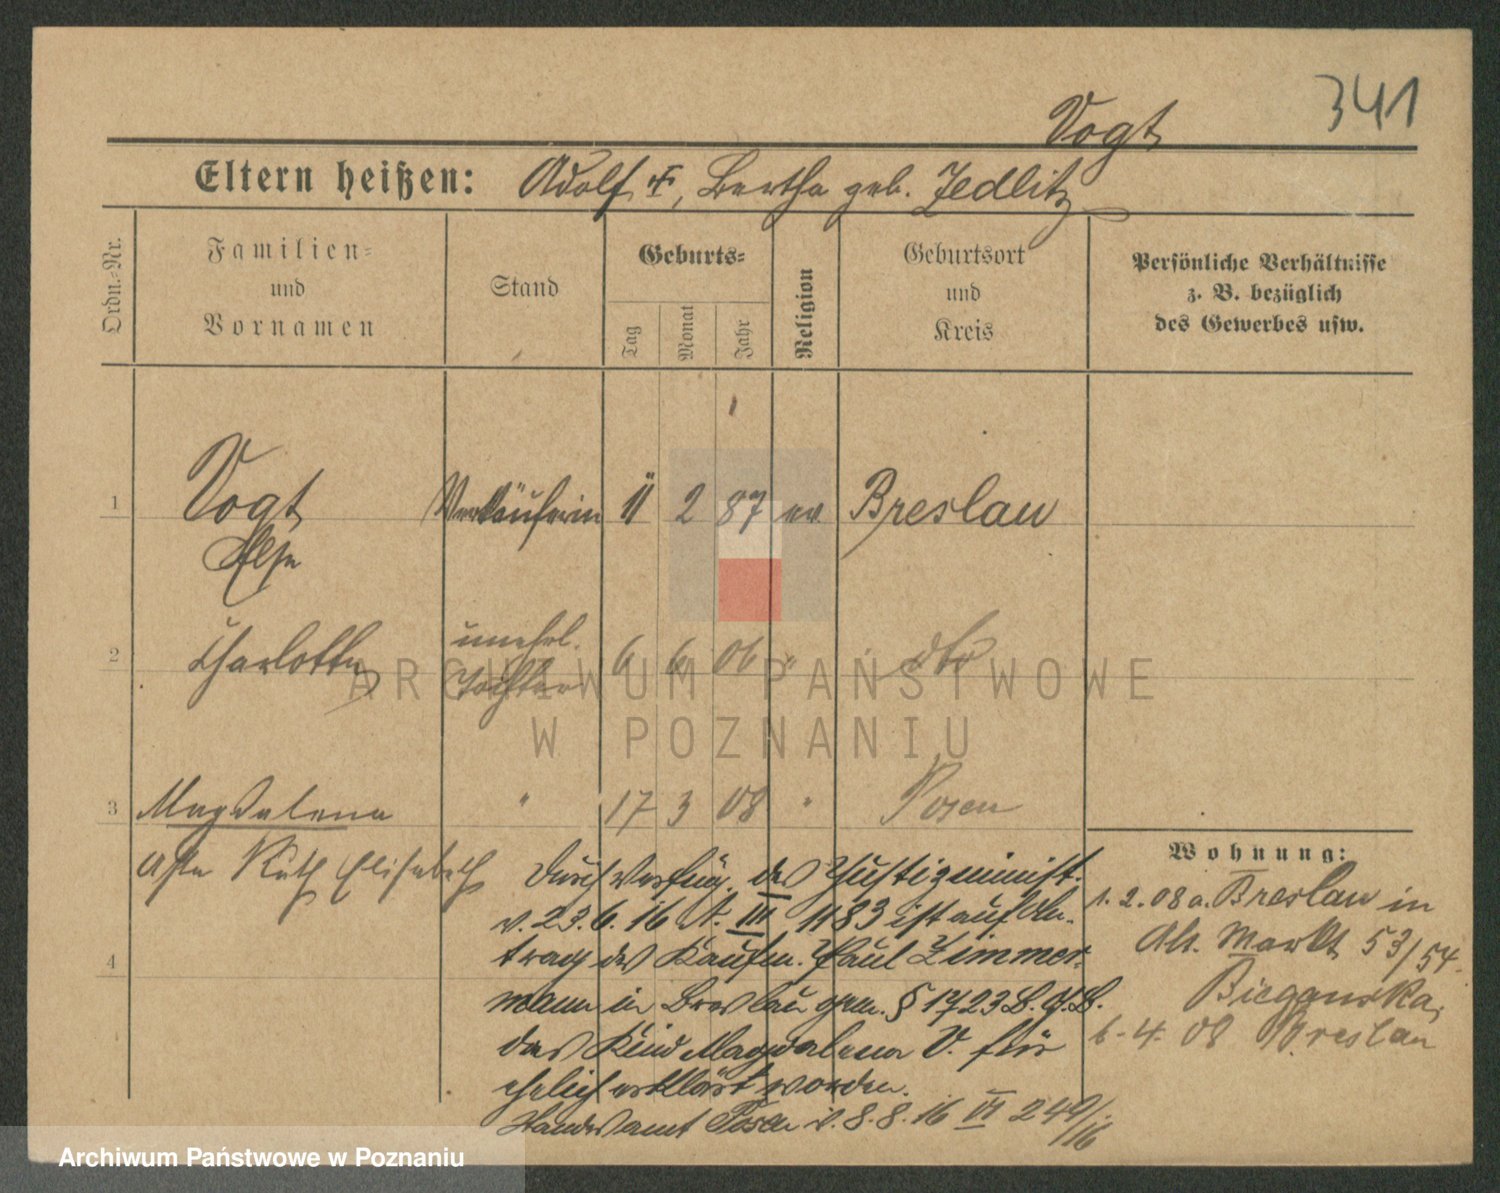 341
Vogt
Eltern heißen: Adolf †, Bertha geb. Zedlitz
Ordn.-Nr.
Familien- und Vornamen
Stand
Geburts-
Tag
Monat
Jahr
Religion
Geburtsort und Kreis
Persönliche Verhältnisse z. B. bezüglich des Gewerbes usw.
1 Vogt Verkäuferin 11 2 87 ev. Breslau
Else
2 Charlotte unehel. Tochter 6 6 06 " dto
3 Magdalena " 17 3 08 " Posen
Asta Ruth Elisabeth
4
Durch Verfüg. des Justizminist.
v. 23.6.16 N. III 1183 ist auf An-
trag des Kaufm. Paul Zimmer-
mann in Breslau gem. § 1723 B.G.B.
das Kind Magdalena V. für
ehelich erklärt worden.
Standesamt Posen v. 8.8.16 VI 249/16
Wohnung:
1. 2. 08 a. Breslau in
Alt. Markt 53/54.
Bieganska,
6. 4. 08 Breslau
ARCHIWUM PAŃSTWOWE
W POZNANIU
Archiwum Państwowe w Poznaniu